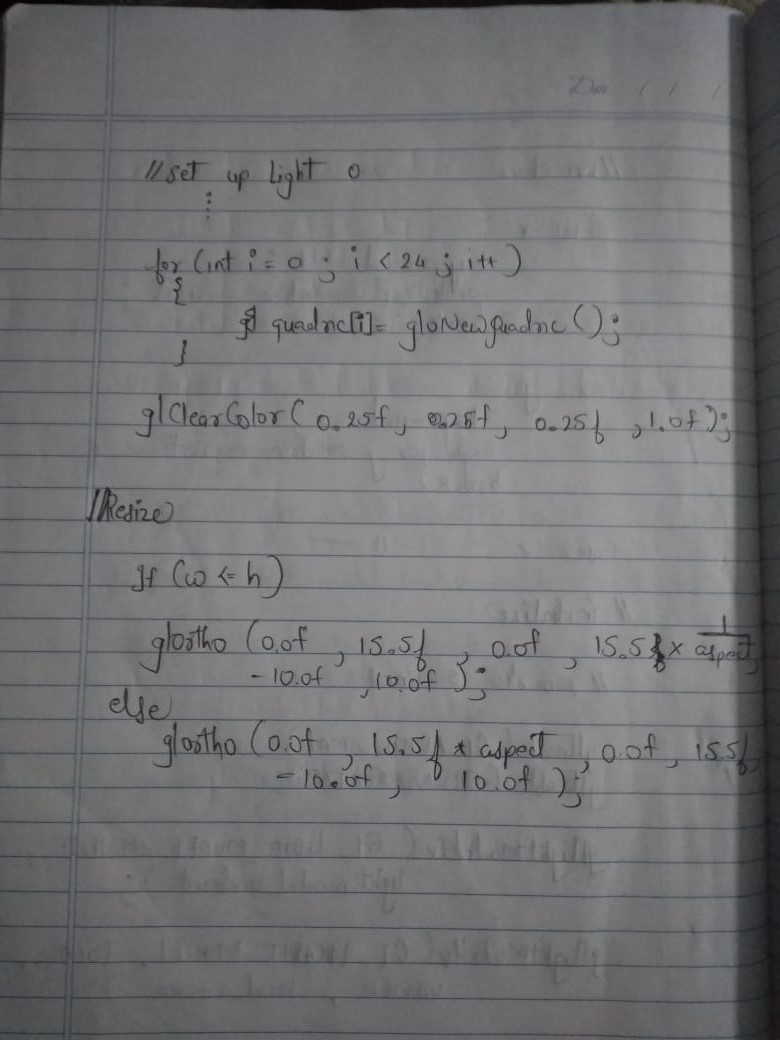 //set up Light 0
⋮
for (int i = 0 ; i < 24 ; i++ )
{
quadric[i] = gluNewQuadric ( ) ;
}
glClearColor ( 0.25f , 0.25f , 0.25f , 1.0f ) ;
//Resize
If (w <= h)
glOrtho (0.0f , 15.5f , 0.0f , 15.5f * 1/aspect ,
-10.0f , 10.0f ) ;
else
glOrtho (0.0f , 15.5f * aspect , 0.0f , 15.5f ,
-10.0f , 10.0f ) ;